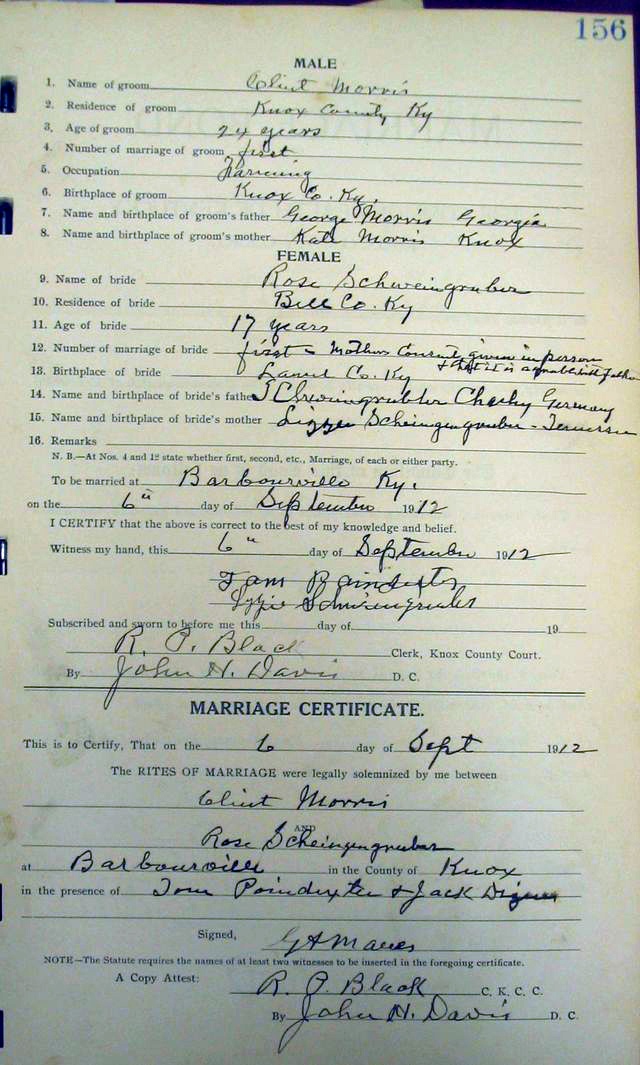 156
MALE
1. Name of groom Clint Morris
2. Residence of groom Knox County Ky
3. Age of groom 24 years
4. Number of marriage of groom first
5. Occupation Farming
6. Birthplace of groom Knox Co. Ky.
7. Name and birthplace of groom's father George Morris Georgia
8. Name and birthplace of groom's mother Kate Morris Knox
FEMALE
9. Name of bride Rose Schweingruber
10. Residence of bride Bell Co. Ky
11. Age of bride 17 years
12. Number of marriage of bride first - Mothers Consent given in person
13. Birthplace of bride Laurel Co. Ky
14. Name and birthplace of bride's father Charley Germany
15. Name and birthplace of bride's mother Lizzie Scheingengruber - Tennessee
16. Remarks
N. B.—At Nos. 4 and 12 state whether first, second, etc., Marriage, of each or either party.
To be married at Barbourville Ky.
on the 6" day of September 1912
I CERTIFY that the above is correct to the best of my knowledge and belief.
Witness my hand, this 6" day of September 1912
Lizzie Schweingruber
Subscribed and sworn to before me this day of 19
R. P. Black Clerk, Knox County Court.
By John H. Davis D. C.
MARRIAGE CERTIFICATE.
This is to Certify, That on the 6 day of Sept 1912
The RITES OF MARRIAGE were legally solemnized by me between
Clint Morris
AND
Rose Scheingengruber
at Barbourville in the County of Knox
in the presence of Tom Poindexter & Jack
Signed,
NOTE—The Statute requires the names of at least two witnesses to be inserted in the foregoing certificate.
A Copy Attest: R. P. Black C. K. C. C.
By John H. Davis D. C.